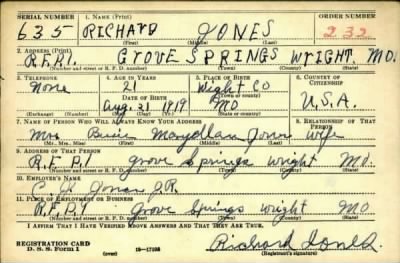 SERIAL NUMBER 1. NAME (Print) ORDER NUMBER
635 RICHARD JONES 232
(First) (Middle) (Last)
2. ADDRESS (Print)
R.F.D.1. GROVE SPRINGS WRIGHT MO.
(Number and street or R. F. D. number) (Town) (County) (State)
3. TELEPHONE 4. AGE IN YEARS 5. PLACE OF BIRTH 6. COUNTRY OF CITIZENSHIP
None 21 Wright Co
DATE OF BIRTH (Town or county)
Aug. 21 1919 MO U.S.A.
(Exchange) (Number) (Mo.) (Day) (Yr.) (State or country)
7. NAME OF PERSON WHO WILL ALWAYS KNOW YOUR ADDRESS 8. RELATIONSHIP OF THAT PERSON
Mrs Maryellen Jones wife
(Mr., Mrs., Miss) (First) (Middle) (Last)
9. ADDRESS OF THAT PERSON
R.F.D.1 grove springs wright MO.
(Number and street or R. F. D. number) (Town) (County) (State)
10. EMPLOYER'S NAME
Jones J.R.
11. PLACE OF EMPLOYMENT OR BUSINESS
R.F.D.1 Grove Springs wright MO
(Number and street or R. F. D. number) (Town) (County) (State)
I AFFIRM THAT I HAVE VERIFIED ABOVE ANSWERS AND THAT THEY ARE TRUE.
REGISTRATION CARD
D. S. S. Form 1 (over) 16—17105 Richard Jones
(Registrant's signature)